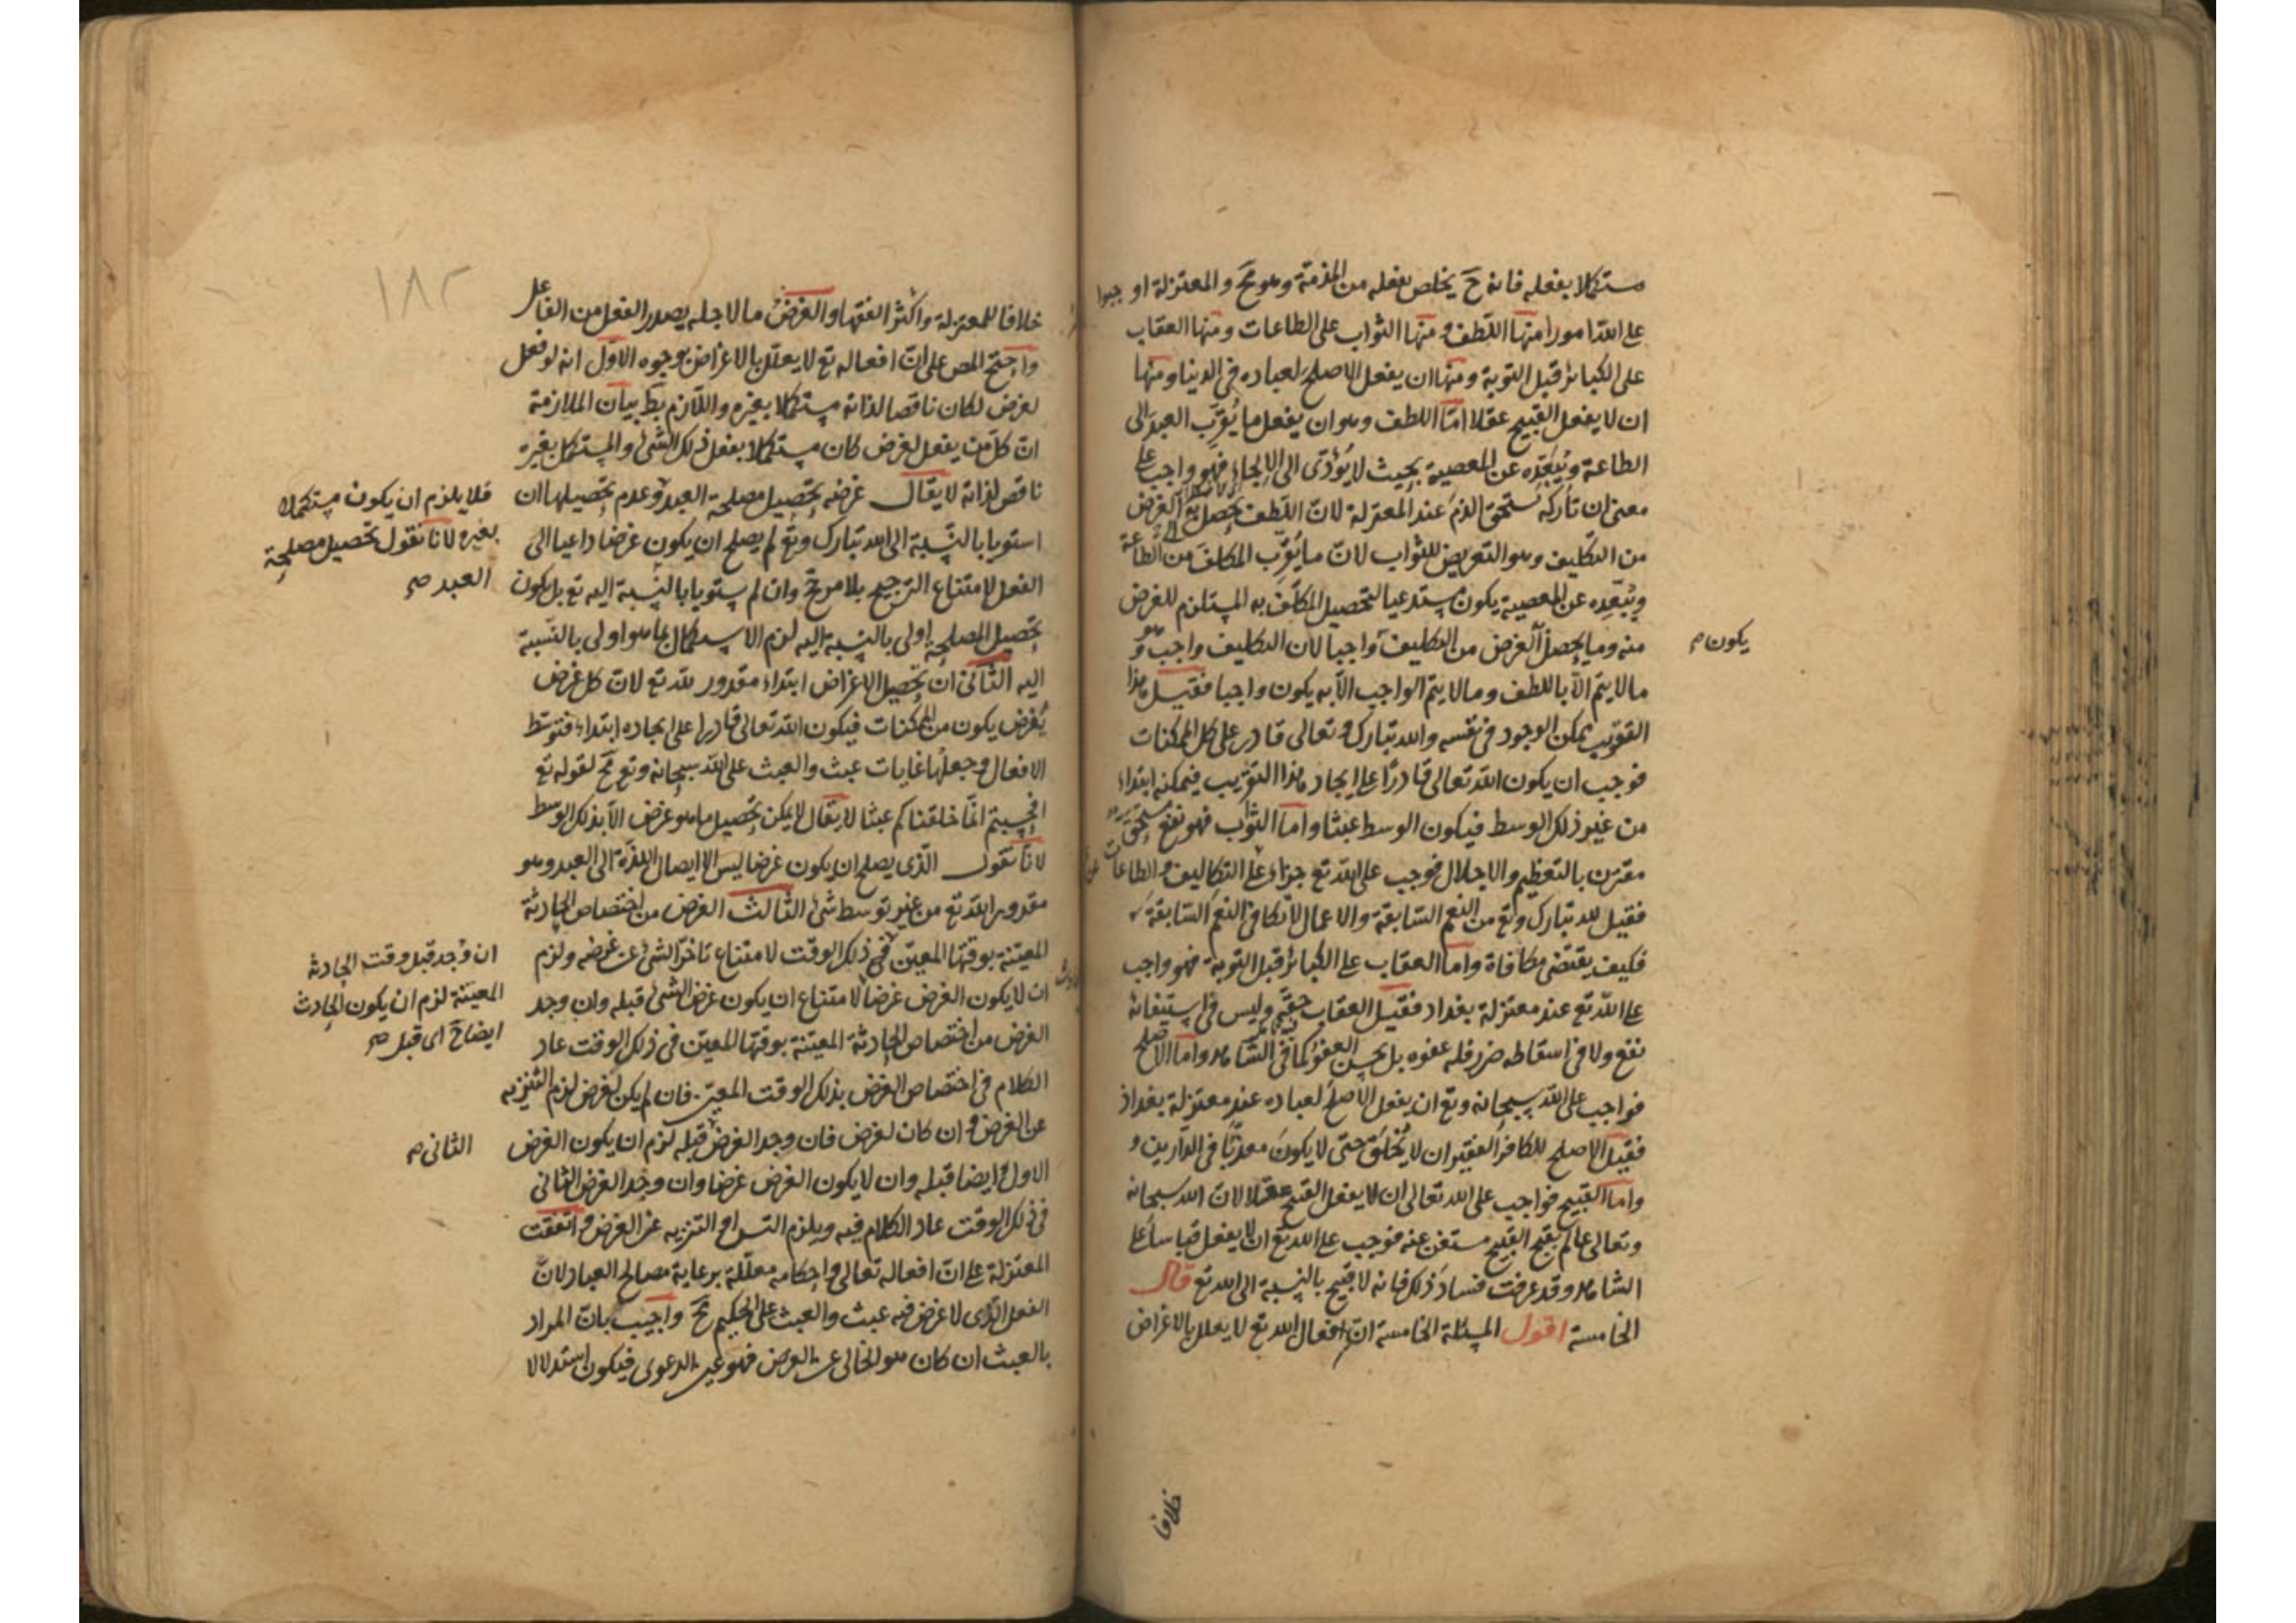 مستكملا بفعله فانه ح يخلص بفعله من المذمة وهو مح والمعتزلة اوجبوا
على الله امورا منها اللطف ومنها الثواب على الطاعات ومنها العقاب
على الكبائر قبل التوبة ومنها ان يفعل الاصلح لعباده في الدنيا ومنها
ان لا يفعل القبيح عقلا اما اللطف وهو ان يفعل ما يُقرِّب العبد الى
الطاعة ويُبَعِّده عن المعصية بحيث لا يُؤدّى الى الالجاء فهو واجب على
معنى ان تاركه يستحق الذم عند المعتزلة لان اللطف يحصل به الغرض
من التكليف وهو التعريض للثواب لان ما يُقرِّب المكلف من الطاعة
ويُبعِّده عن المعصية يكون مستدعيا لتحصيل المكلَّف به المستلزم للغرض
منه وما يحصل الغرض من التكليف واجبا لان التكليف واجب وهو
يكون م
ما لا يتم الا باللطف وما لا يتم الواجب الا به يكون واجبا فقيل هذا
التقريب ممكن الوجود في نفسه والله تبارك وتعالى قادر على كل الممكنات
فوجب ان يكون الله تعالى قادرا على ايجاد هذا التقريب فيمكنه ابتداء
من غير ذلك الوسط فيكون الوسط عبثا واما الثواب فهو نفع مستحق
مقترن بالتعظيم والاجلال فوجب على الله تع جزاء على التكاليف والطاعات
فقيل لله تبارك وتع من النعم السّابقة والاعمال لا تكافى النعم السّابقة
فكيف يقتضى مكافاة واما العقاب على الكبائر قبل التوبة فهو واجب
على الله تع عند معتزلة بغداد فقيل العقاب حقه وليس في استيفائه
نفع ولا في اسقاطه ضرر فله عفوه بل يحسن العفو كما في الشاهد واما الاصلح
فواجب على الله سبحانه وتع ان يفعل الاصلح لعباده عند معتزلة بغداد
فقيل الاصلح للكافر الفقير ان لا يُخلَق حتى لا يكونَ معذّبًا في الدّارين و
واما القبيح فواجب على الله تعالى ان لا يفعل القبيح عقلا لان الله سبحانه
وتعالى عالم بقبح القبيح مستغن عنه فوجب على الله تع ان لا يفعل قياسا على
الشاهد وقد عرفت فسادَ ذلك فانه لا قبيح بالنسبة الى الله تع قال
الخامسة اقول المسئلة الخامسة ان افعال الله تع لا يعلل بالاغراض
خلافا
١٨٢
خلافا للمعتزلة واكثر الفقهاء والغرض ما لاجله يصدر الفعل من الفاعل
واحتج المص على ان افعاله تع لا يعلل بالاغراض بوجوه الاول انه لو فعل
لغرض لكان ناقصا لذاته مستكملا بغيره واللازم بط بيان الملازمة
ان كل من يفعل لغرض كان مستكملا بفعل ذلك الشئ والمستكمل بغيره
ناقص لذاته لا يقال غرضه تحصيل مصلحة العبد وعدم تحصيلها ان
فلا يلزم ان يكون مستكملا
بغيره لانا نقول تحصيل مصلحة
العبد صح
استويا بالنسبة الى الله تبارك وتع لم يصلح ان يكون غرضا داعيا الى
الفعل لامتناع الترجيح بلا مرجح وان لم يستويا بالنسبة اليه تع بل يكون
تحصيل المصلحة اولى بالنسبة اليه لزم الاستكمال بما هو اولى بالنسبة
اليه الثانى ان تحصيل الاغراض ابتداء مقدور لله تع لان كل غرض
يُفرض يكون من الممكنات فيكون الله تعالى قادرا على ايجاده ابتداء فتوسّط
الافعال وجعلها غايات عبث والعبث على الله سبحانه وتع مح لقوله تع
افحسبتم انما خلقناكم عبثا لا يقال لا يمكن تحصيل ما هو غرض الا بذلك الوسط
لانا نقول الذى يصلح ان يكون غرضا ليس الا ايصال اللذة الى العبد وهو
مقدور الله تع من غير توسط شئ الثالث الغرض من اختصاص الحادثة
المعيّنة بوقتها المعيّن في ذلك الوقت لامتناع تاخر الشئ عن غرضه ولزم
ان وُجد قبل وقت الحادثة
المعينة لزم ان يكون الحادث
ايضا ح اى قبل صح
ان لا يكون الغرض غرضا لامتناع ان يكون غرض الشئ قبله وان وجد
الغرض من اختصاص الحادثة المعيّنة بوقتها المعيّن في ذلك الوقت عاد
الكلام في اختصاص الغرض بذلك الوقت المعين فان لم يكن لغرض لزم التنزيه
عن الغرض وان كان لغرض فان وجد الغرض قبله لزم ان يكون الغرض
الثانى م
الاول ايضا قبله وان لا يكون الغرض غرضا وان وجد الغرض الثانى
في ذلك الوقت عاد الكلام فيه ويلزم التس او التنزيه عن الغرض واتفقت
المعتزلة على ان افعاله تعالى واحكامه معلّلة برعاية مصالح العباد لان
الفعل الذى لا غرض فيه عبث والعبث على الحكيم مح واجيب بان المراد
بالعبث ان كان هو الخالى عن الغرض فهو عين الدعوى فيكون استدلالا